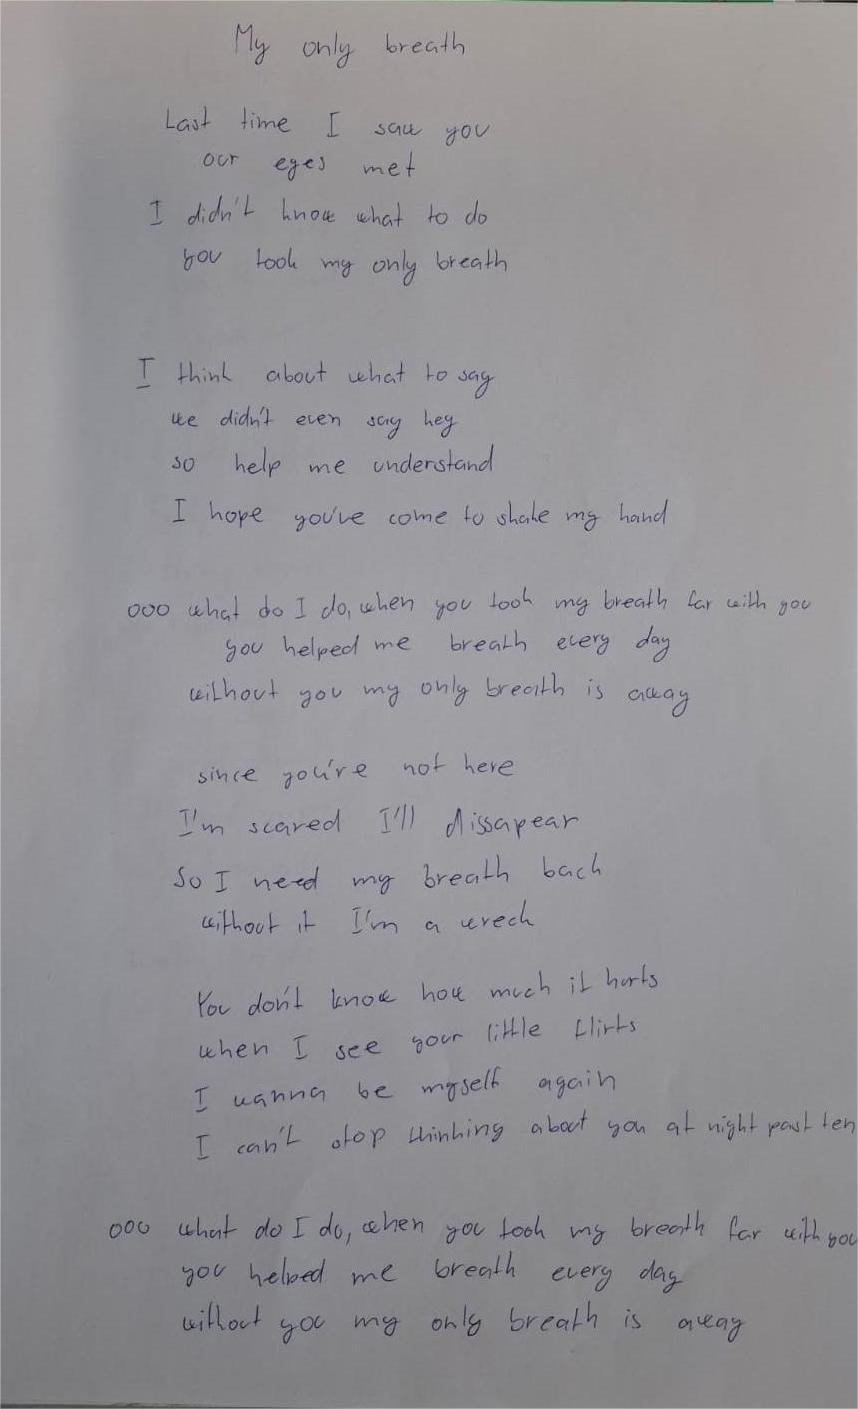 My only breath
Last time I saw you
our eyes met
I didn't know what to do
you took my only breath
I think about what to say
we didn't even say hey
so help me understand
I hope you've come to shake my hand
ooo what do I do, when you took my breath far with you
you helped me breath every day
without you my only breath is away
since you're not here
I'm scared I'll dissapear
So I need my breath back
without it I'm a wreck
You don't know how much it hurts
when I see your little flirts
I wanna be myself again
I can't stop thinking about you at night past ten
ooo what do I do, when you took my breath far with you
you helped me breath every day
without you my only breath is away